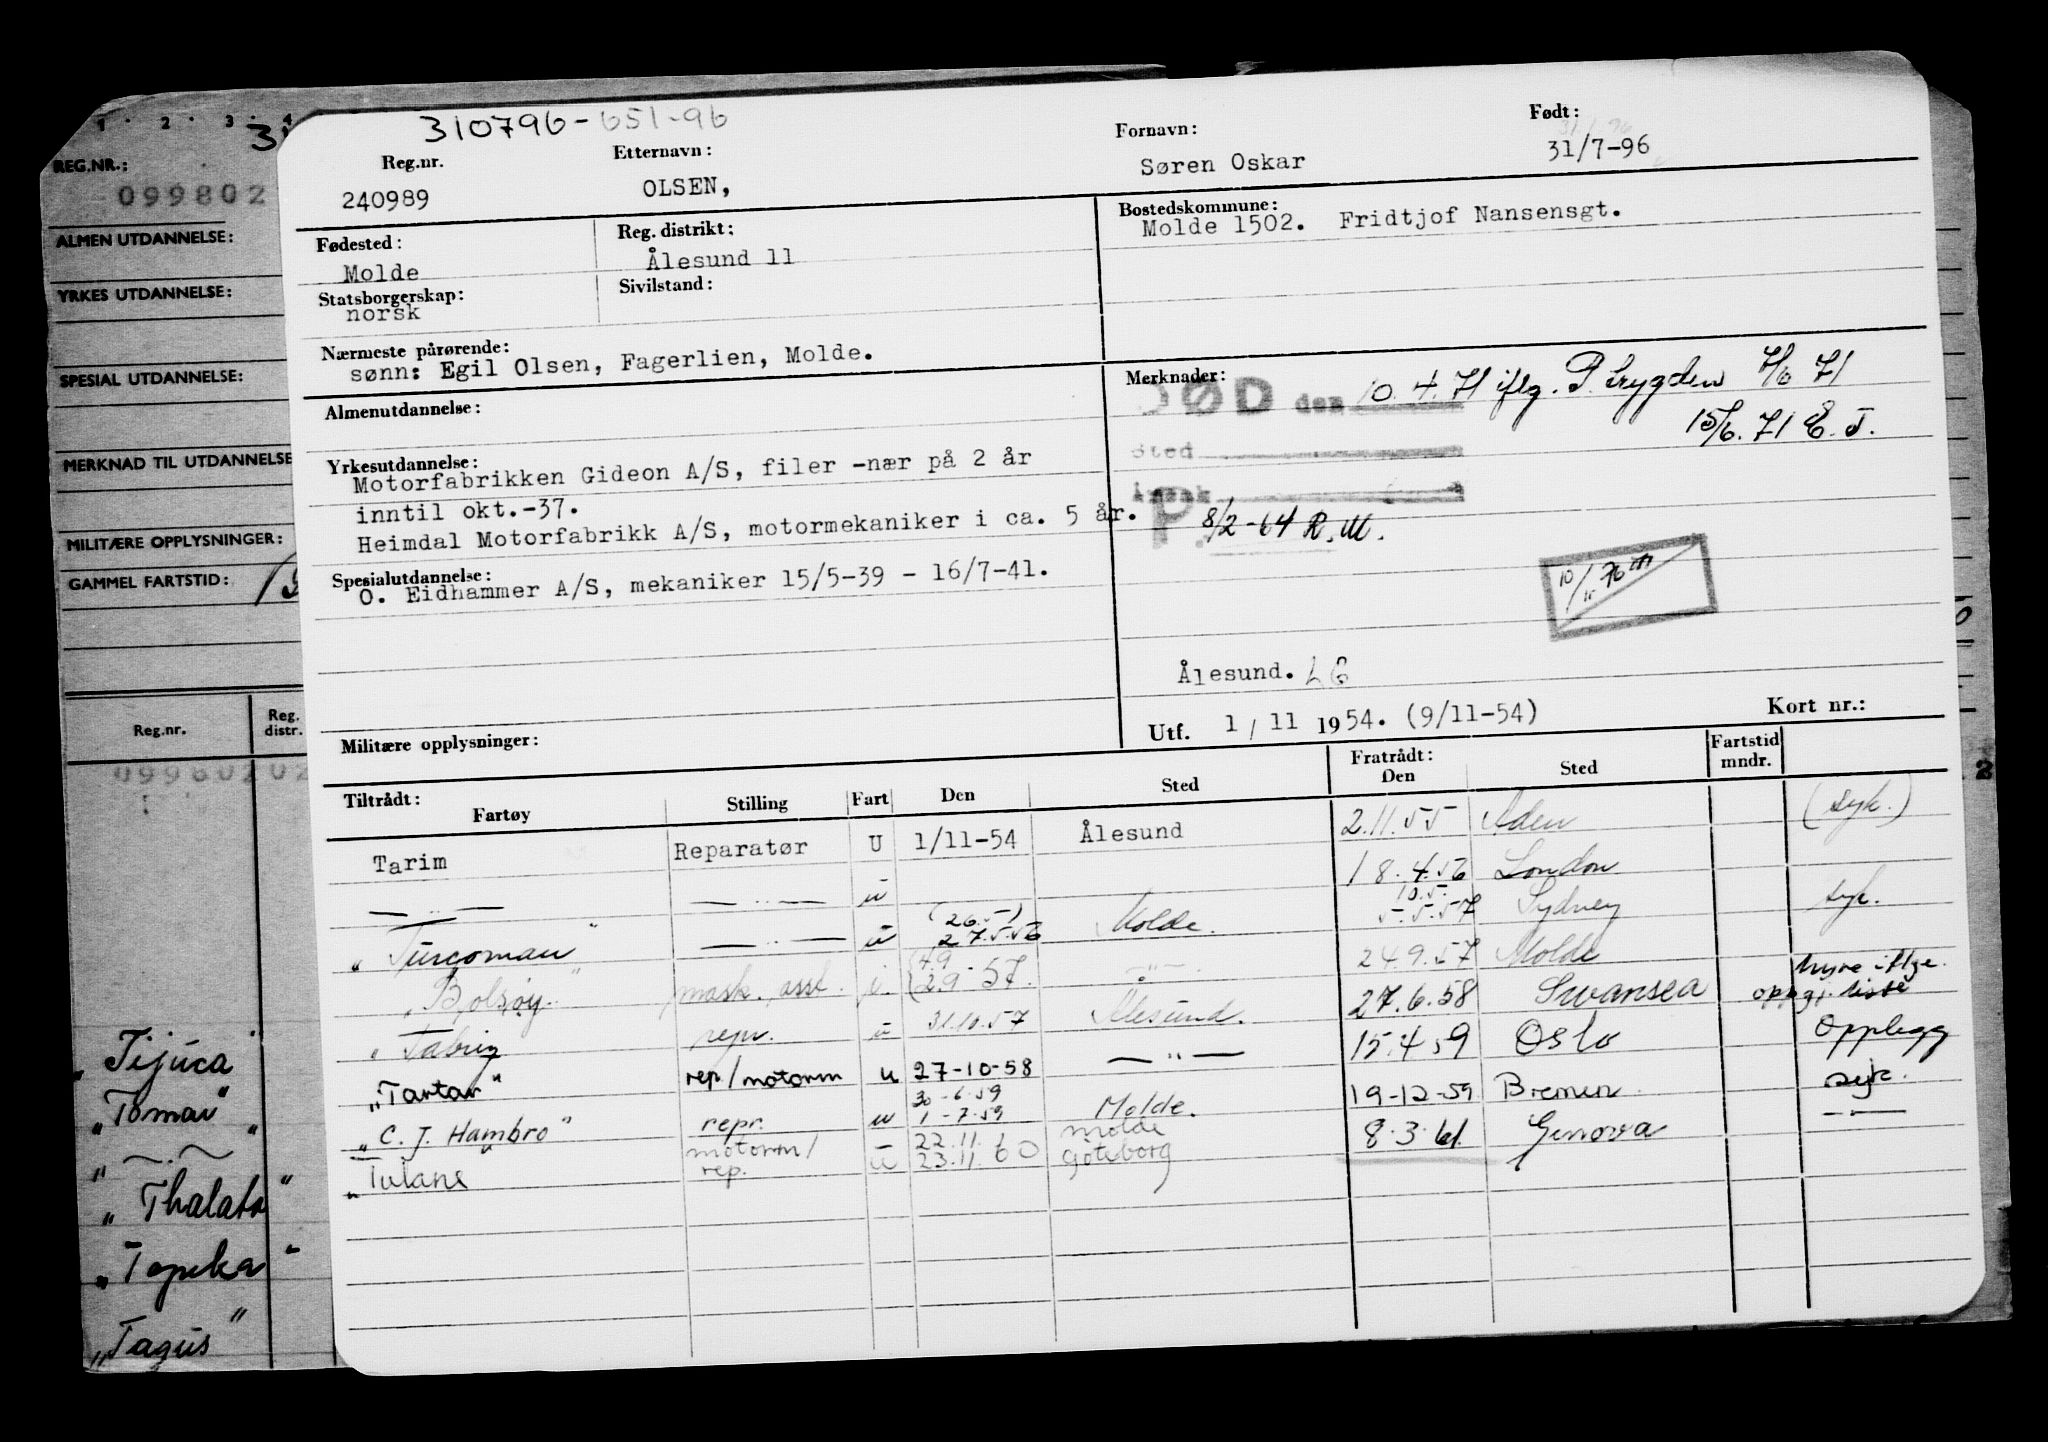 1 . 2 . 3 . 4
REG.NR.:
099802
ALMEN UTDANNELSE:
YRKES UTDANNELSE:
SPESIAL UTDANNELSE:
MERKNAD TIL UTDANNELSE
MILITÆRE OPPLYSNINGER:
GAMMEL FARTSTID:
Reg.nr. Reg. distr.
"Tijuca"
"Tomar"
"Thalata"
"Topeka"
"Tagus"
310796-651-96
Reg.nr. Etternavn: Fornavn: Født:
240989 OLSEN, Søren Oskar 31/7-96
Fødested: Reg. distrikt: Bostedskommune:
Molde Ålesund 11 Molde 1502. Fridtjof Nansensgt.
Statsborgerskap: Sivilstand:
norsk
Nærmeste pårørende:
sønn: Egil Olsen, Fagerlien, Molde.
Merknader:
DØD den 10.4.71 iflg. P.trygden 7/6 71
15/6.71 E.J.
Sted
Årsak
P. 8/2-64 R.M.
10/ 76
Ålesund. LG
Utf. 1/11 1954. (9/11-54) Kort nr.:
Almenutdannelse:
Yrkesutdannelse:
Motorfabrikken Gideon A/S, filer -nær på 2 år
inntil okt.-37.
Heimdal Motorfabrikk A/S, motormekaniker i ca. 5 år.
Spesialutdannelse:
O. Eidhammer A/S, mekaniker 15/5-39 - 16/7-41.
Militære opplysninger:
Tiltrådt: Fratrådt: Fartstid mndr.
Fartøy Stilling Fart Den Sted Den Sted
Tarim Reparatør U 1/11-54 Ålesund 2.11.55 Aden (syk.)
— " — — " — u 18.4.56 London
"Turcoman" — " — u (26.5) 27.5.56 Molde. 10.5. 5.5.57 Sydney syk.
"Bolsøy" mask. asst. i. (4.9 2.9-57. — " — 24.9.57 Molde
"Tabriz repr. u 31.10.57 Ålesund. 27.6.58 Swansea hyre iflge. oppgj. liste
"Tartar" rep/motorm u 27-10-58 — " — 15.4.59 Oslo Opplegg
"C. J. Hambro" repr. u 30-6.59 1-7.59 Molde. 19-12-59 Bremen syk.
"Tulane" motorm/rep. u 22.11. 23.11.60 Molde Göteborg 8.3.61 Genova — " —